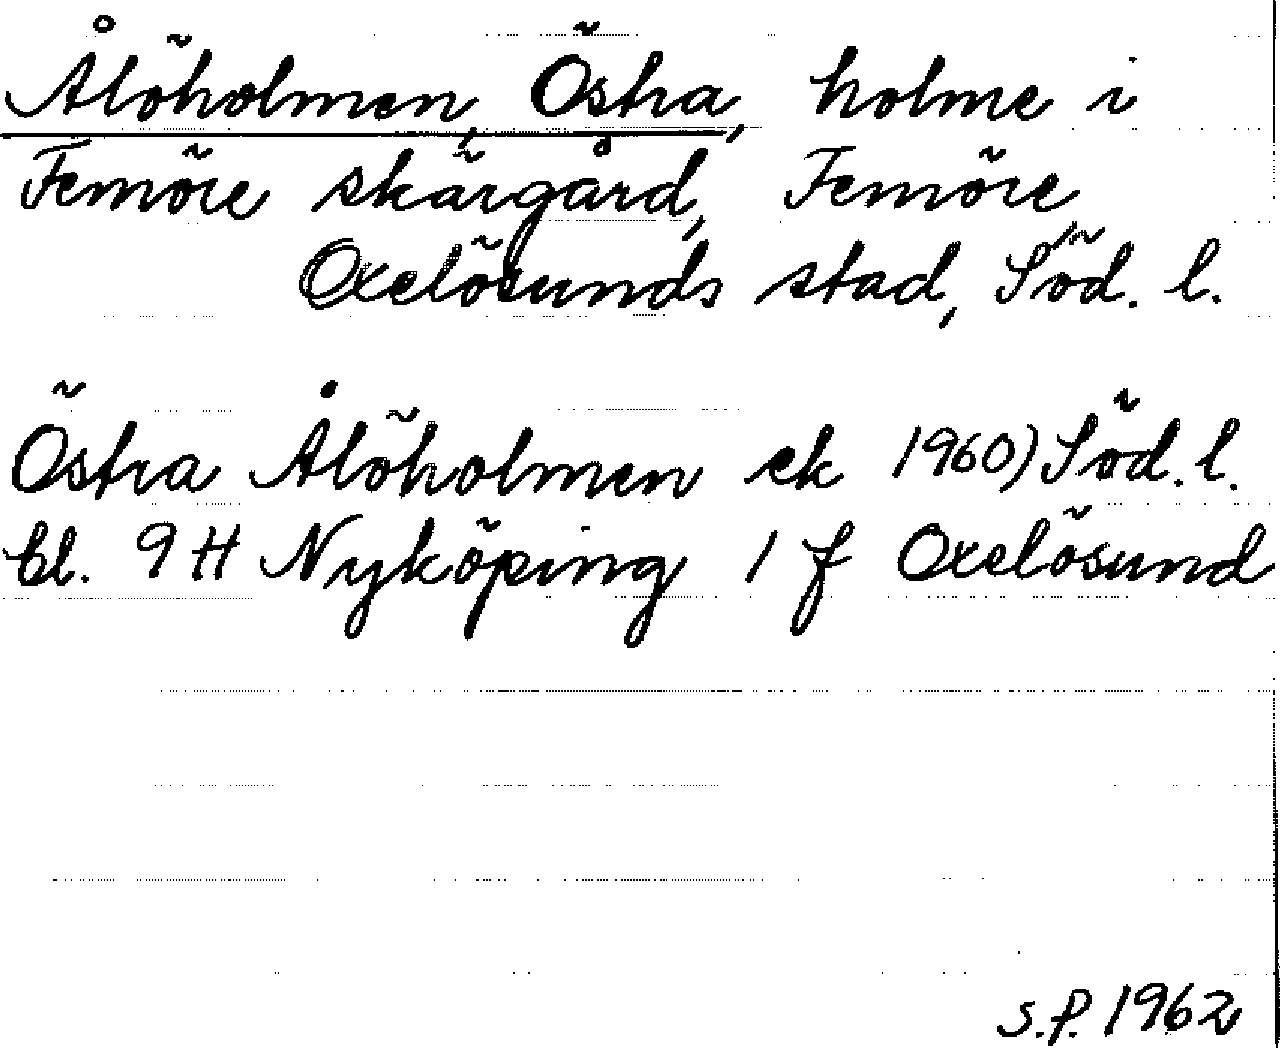 Ålöholmen, Östra, holme i
Femöre skärgård, Femöre
Oxelösunds stad, Söd. l.
Östra Ålöholmen ek 1960) Söd. l.
bl. 9 H Nyköping 1 f Oxelösund
S.P. 1962